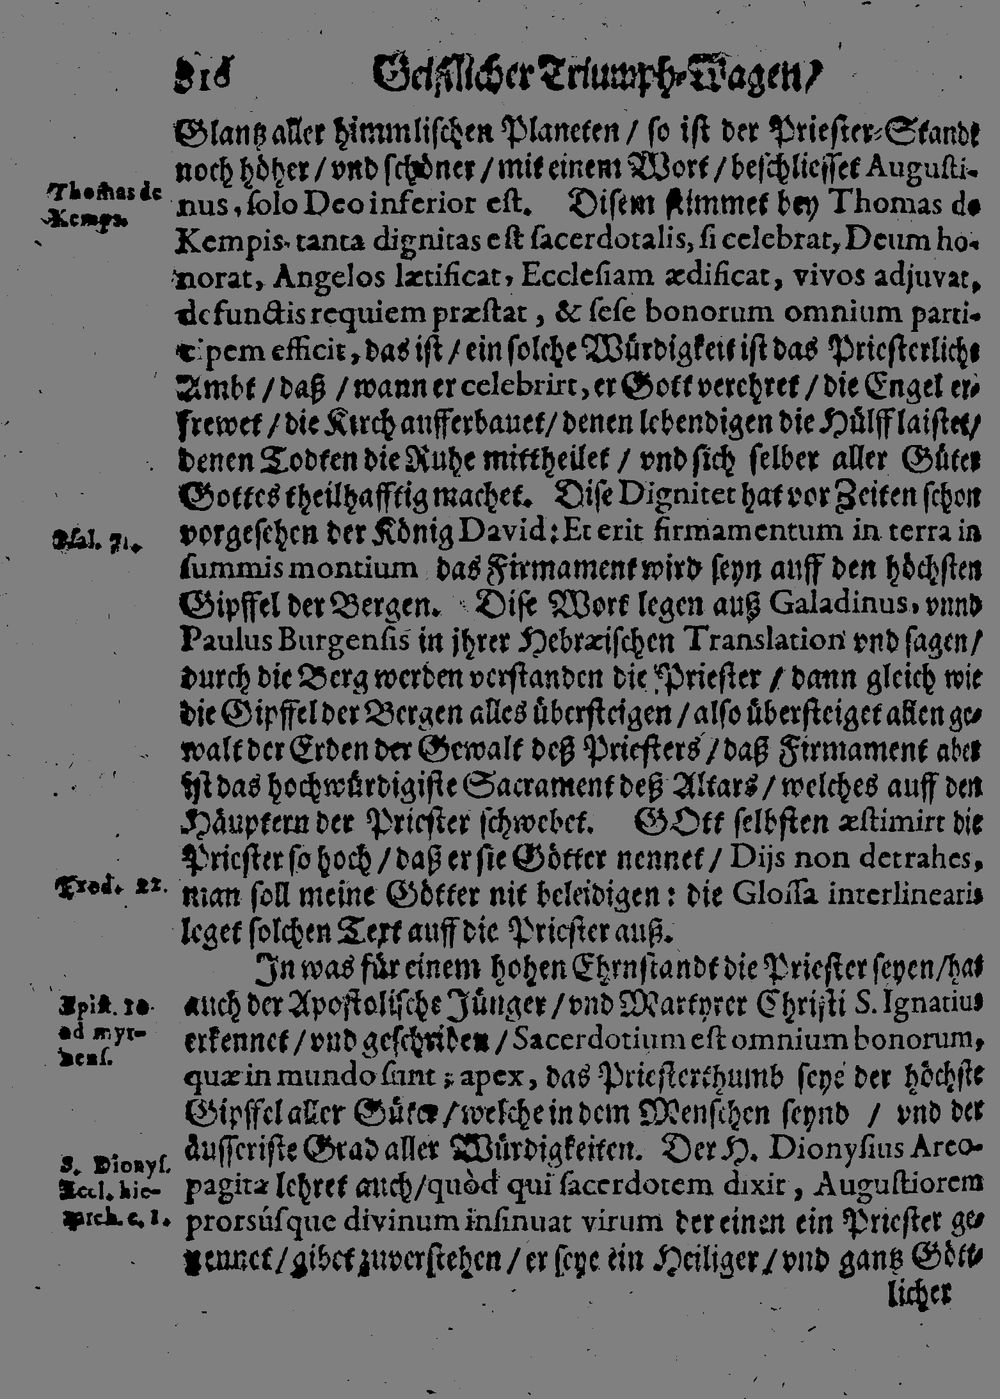 816 Geistlicher Triumph-Wagen/
Glantz aller himmlischen Planeten / so ist der Priester-Standt
noch höher / vnd schöner / mit einem Wort / beschliesset Augusti-
Thomas de
Kemps.
nus, solo Deo inferior est. Disem stimmet bey Thomas de
Kempis, tanta dignitas est sacerdotalis, si celebrat, Deum ho-
norat, Angelos lætificat, Ecclesiam ædificat, vivos adjuvat,
defunctis requiem præstat, & sese bonorum omnium parti-
cipem efficit, das ist / ein solche Würdigkeit ist das Priesterliche
Ambt / daß / wann er celebrirt, er Gott verehret / die Engel er-
frewet / die Kirch aufferbauet / denen lebendigen die Hülff laistet /
denen Todten die Ruhe mittheilet / vnd sich selber aller Güter
Gottes theilhafftig machet. Dise Dignitet hat vor Zeiten schon
Psal. 71.
vorgesehen der König David: Et erit firmamentum in terra in
summis montium das Firmament wird seyn auff den höchsten
Gipffel der Bergen. Dise Wort legen auß Galadinus, vnnd
Paulus Burgensis in jhrer Hebræischen Translation vnd sagen /
durch die Berg werden verstanden die Priester / dann gleich wie
die Gipffel der Bergen alles übersteigen / also übersteiget allen ge-
walt der Erden der Gewalt deß Priesters / daß Firmament aber
ist das hochwürdigiste Sacrament deß Altars / welches auff den
Häuptern der Priester schwebet. GOtt selbsten æstimirt die
Priester so hoch / daß er sie Götter nennet / Dijs non detrahes,
Exod. 22.
man soll meine Götter nit beleidigen: die Glossa interlinearis
leget solchen Text auff die Priester auß.
In was für einem hohen Ehrnstandt die Priester seyen / hat
Epist. 10.
ad myr-
nens.
auch der Apostolische Jünger / vnd Martyrer Christi S. Ignatius
erkennet / vnd geschriben / Sacerdotium est omnium bonorum,
quæ in mundo sunt ; apex, das Priesterthumb seye der höchste
Gipffel aller Güter / welche in dem Menschen seynd / vnd der
äusseriste Grad aller Würdigkeiten. Der H. Dionysius Areo-
S. Dionys.
Eccl. hie-
arch. c. 1.
pagita lehret auch / quòd qui sacerdotem dixit, Augustiorem
prorsúsque divinum insinuat virum der einen ein Priester ge-
nennet / gibet zuverstehen / er seye ein Heiliger / vnd gantz Gött-
licher